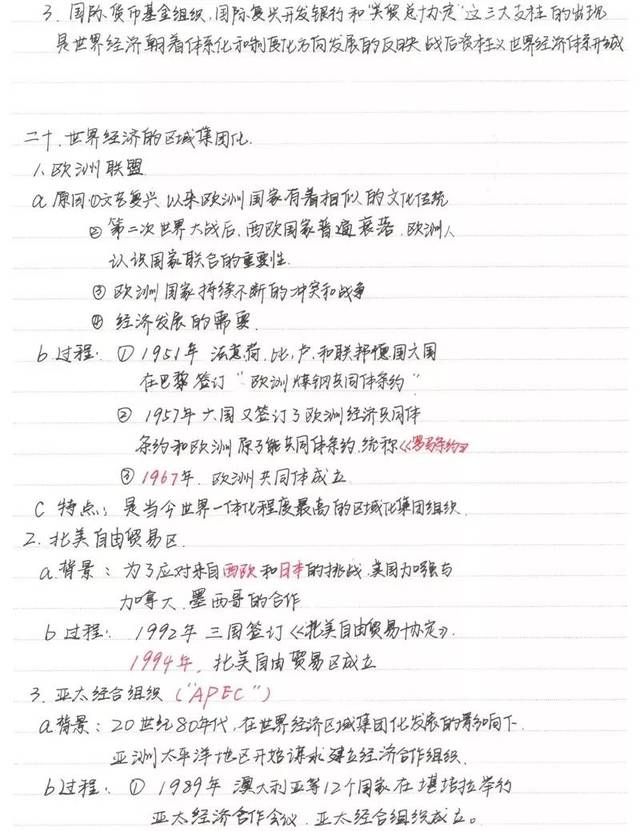 3. 国际货币基金组织,国际复兴开发银行和"关贸总协定"这三大支柱的出现
是世界经济朝着体系化和制度化方向发展的反映 战后资本主义世界经济体系形成
二十. 世界经济的区域集团化.
1. 欧洲联盟
a 原因 ①文艺复兴以来欧洲国家有着相似的文化传统
② 第二次世界大战后,西欧国家普遍衰落.欧洲人
认识国家联合的重要性.
③ 欧洲国家持续不断的冲突和战争
④ 经济发展的需要.
b 过程. ① 1951年 法意荷.比,卢.和联邦德国六国
在巴黎签订"欧洲煤钢共同体条约"
② 1957年六国又签订了欧洲经济共同体
条约和欧洲原子能共同体条约.统称《罗马条约》
③ 1967年. 欧洲共同体成立
C 特点: 是当今世界一体化程度最高的区域化集团组织.
2. 北美自由贸易区.
a.背景: 为了应对来自西欧和日本的挑战.美国加强与
加拿大.墨西哥的合作
b 过程: 1992年 三国签订《北美自由贸易协定》.
1994年. 北美自由贸易区成立
3. 亚太经合组织 ("APEC")
a背景: 20世纪80年代,在世界经济区域集团化发展的影响下.
亚洲太平洋地区开始谋求建立经济合作组织.
b过程: ① 1989年 澳大利亚等12个国家在堪培拉举行
亚太经济合作会议.亚太经合组织成立。